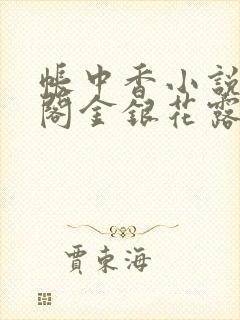 帐中香小説
閣金銀花露
賈東海